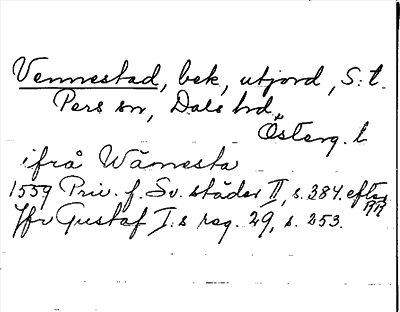 Vennestad, bek, utjord, S:t.
Pers sn, Dals hd,
Österg. l
ifrå Wämesta
1559 Priv. f. Sv. städer II, s. 384. efter
Jfr Gustaf I:s reg. 29, s. 253.